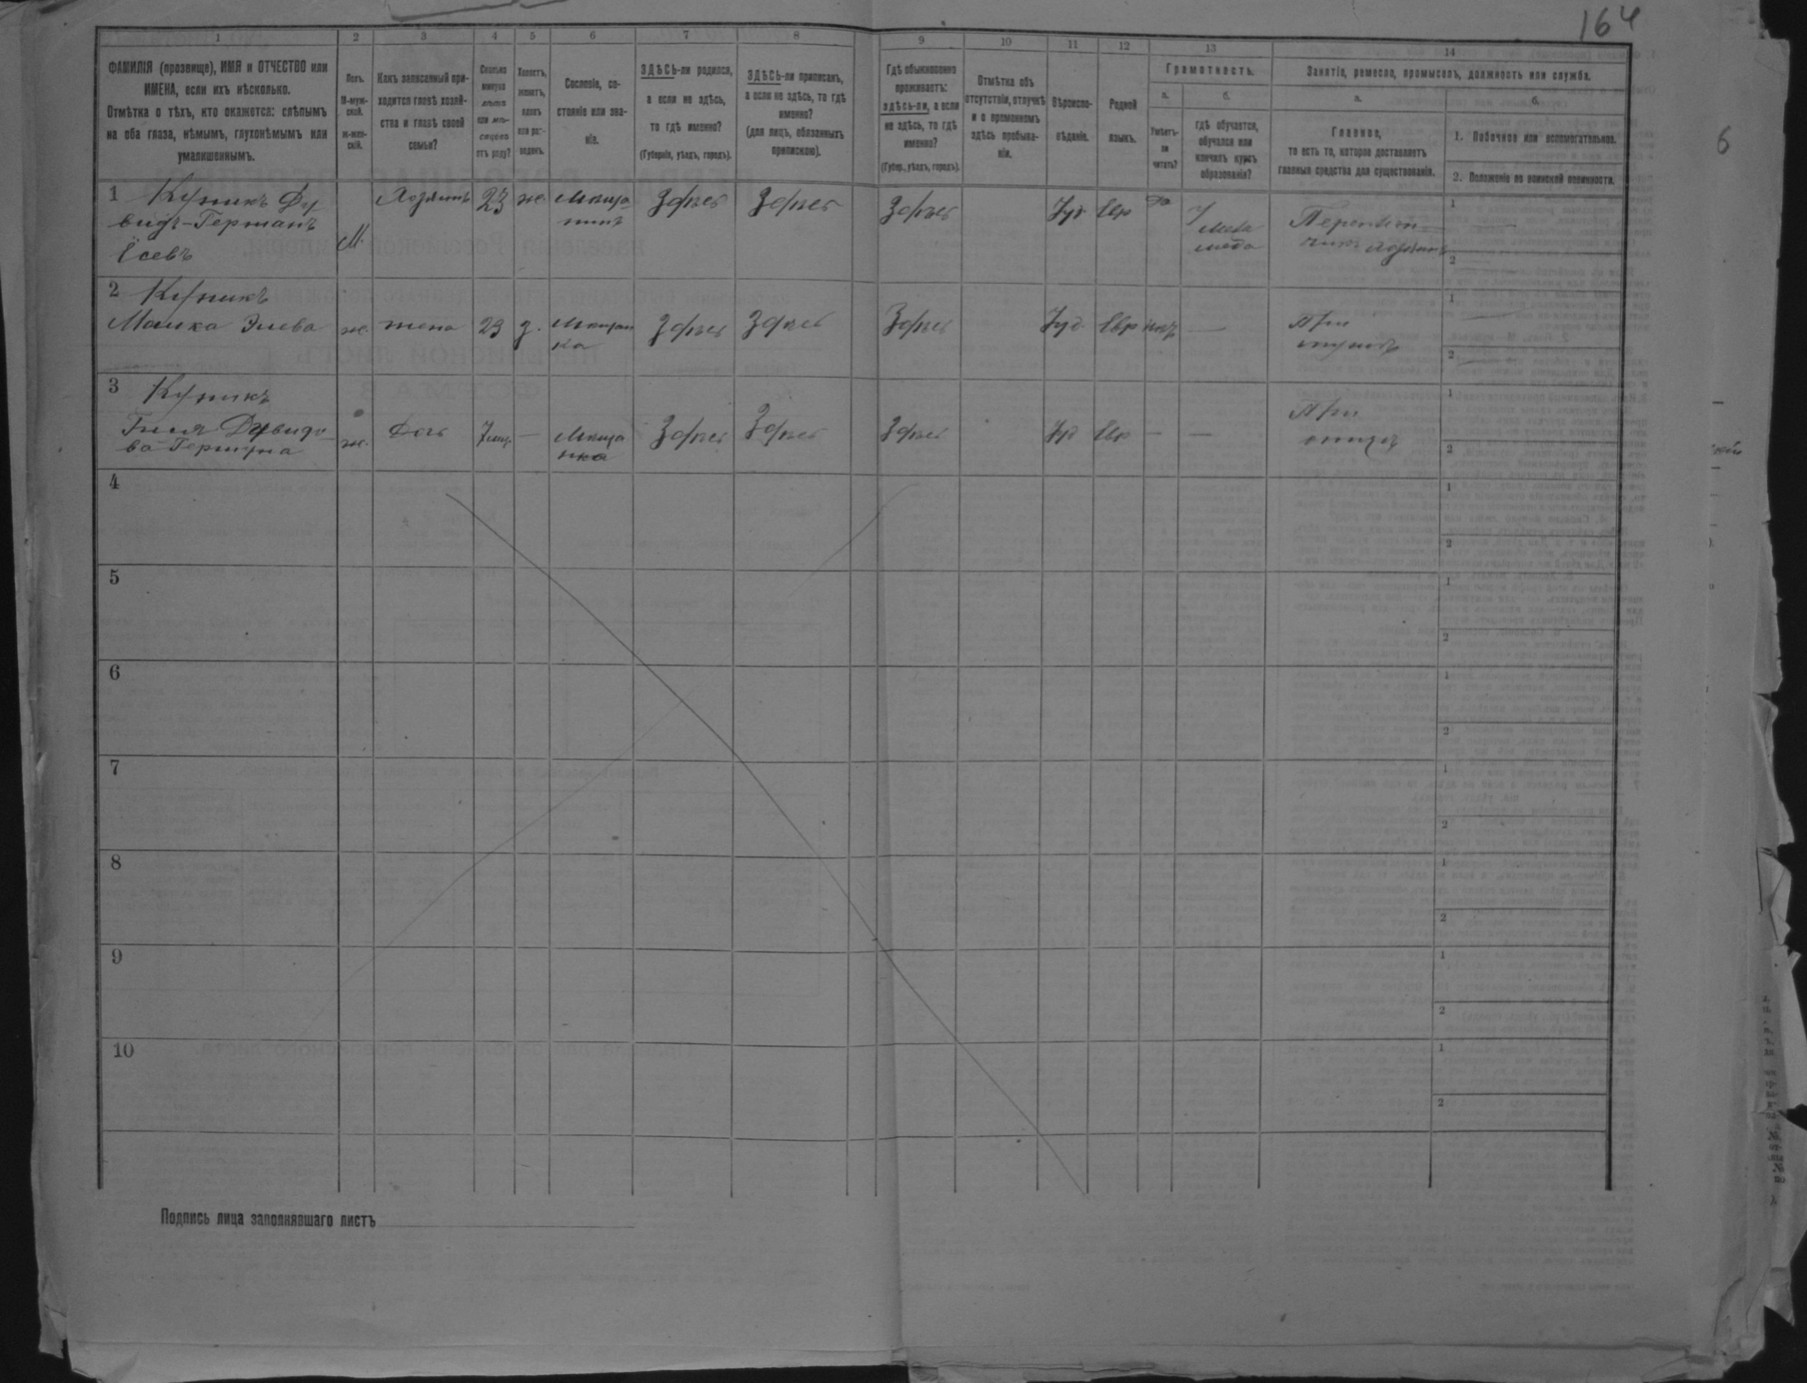 164
1 2 3 4 5 6 7 8 9 10 11 12 13 14
ФАМИЛІЯ (прозвище), ИМЯ и ОТЧЕСТВО или
ИМЕНА, если ихъ нѣсколько.
Отмѣтка о тѣхъ, кто окажется: слѣпымъ
на оба глаза, нѣмымъ, глухонѣмымъ или
умалишеннымъ.
Полъ.
М-муж-
ской.
ж-жен-
скій.
Какъ записанный при-
ходится главѣ хозяй-
ства и главѣ своей
семьи?
Сколько
минуло
лѣтъ
или мѣ-
сяцевъ
отъ роду?
Холостъ,
женатъ,
вдовъ
или раз-
веденъ.
Сословіе, со-
стояніе или зва-
ніе.
ЗДѢСЬ-ли родился,
а если не здѣсь,
то гдѣ именно?
(Губернія, уѣздъ, городъ).
ЗДѢСЬ-ли приписанъ,
а если не здѣсь, то гдѣ
именно?
(для лицъ, обязанныхъ
припискою).
Гдѣ обыкновенно
проживаетъ:
здѣсь-ли, а если
не здѣсь, то гдѣ
именно?
(Губер., уѣздъ, городъ).
Отмѣтка объ
отсутствіи, отлучкѣ
и о временномъ
здѣсь пребыва-
ніи.
Вѣроиспо-
вѣданіе.
Родной
языкъ.
Грамотность.
а.
Умѣетъ-
ли
читать?
б.
гдѣ обучается,
обучался или
кончилъ курсъ
образованія?
Занятіе, ремесло, промыселъ, должность или служба.
а.
Главное,
то есть то, которое доставляетъ
главныя средства для существованія.
б.
1. Побочное или вспомогательное.
2. Положеніе по воинской повинности.
1 Куникъ Ду
видъ-Германъ
Іосевъ
М. Хозяинъ 23 ж Мѣща
нинъ
Здѣсь Здѣсь Здѣсь Іуд Евр да
у
мела
меда
1
2
2 Куникъ
Малка
же. жена 23 з. Мѣщан
ка
Здѣсь Здѣсь Здѣсь Іуд Евр нѣтъ —
При
мужѣ
1
2
3 Куникъ
же. Дочь 7 — Мѣща
нка
Здѣсь Здѣсь Здѣсь Іуд Евр — —
При
отцѣ
1
2
4
1
2
5
1
2
6
1
2
7
1
2
8
1
2
9
1
2
10
1
2
Подпись лица заполнявшаго листъ
6